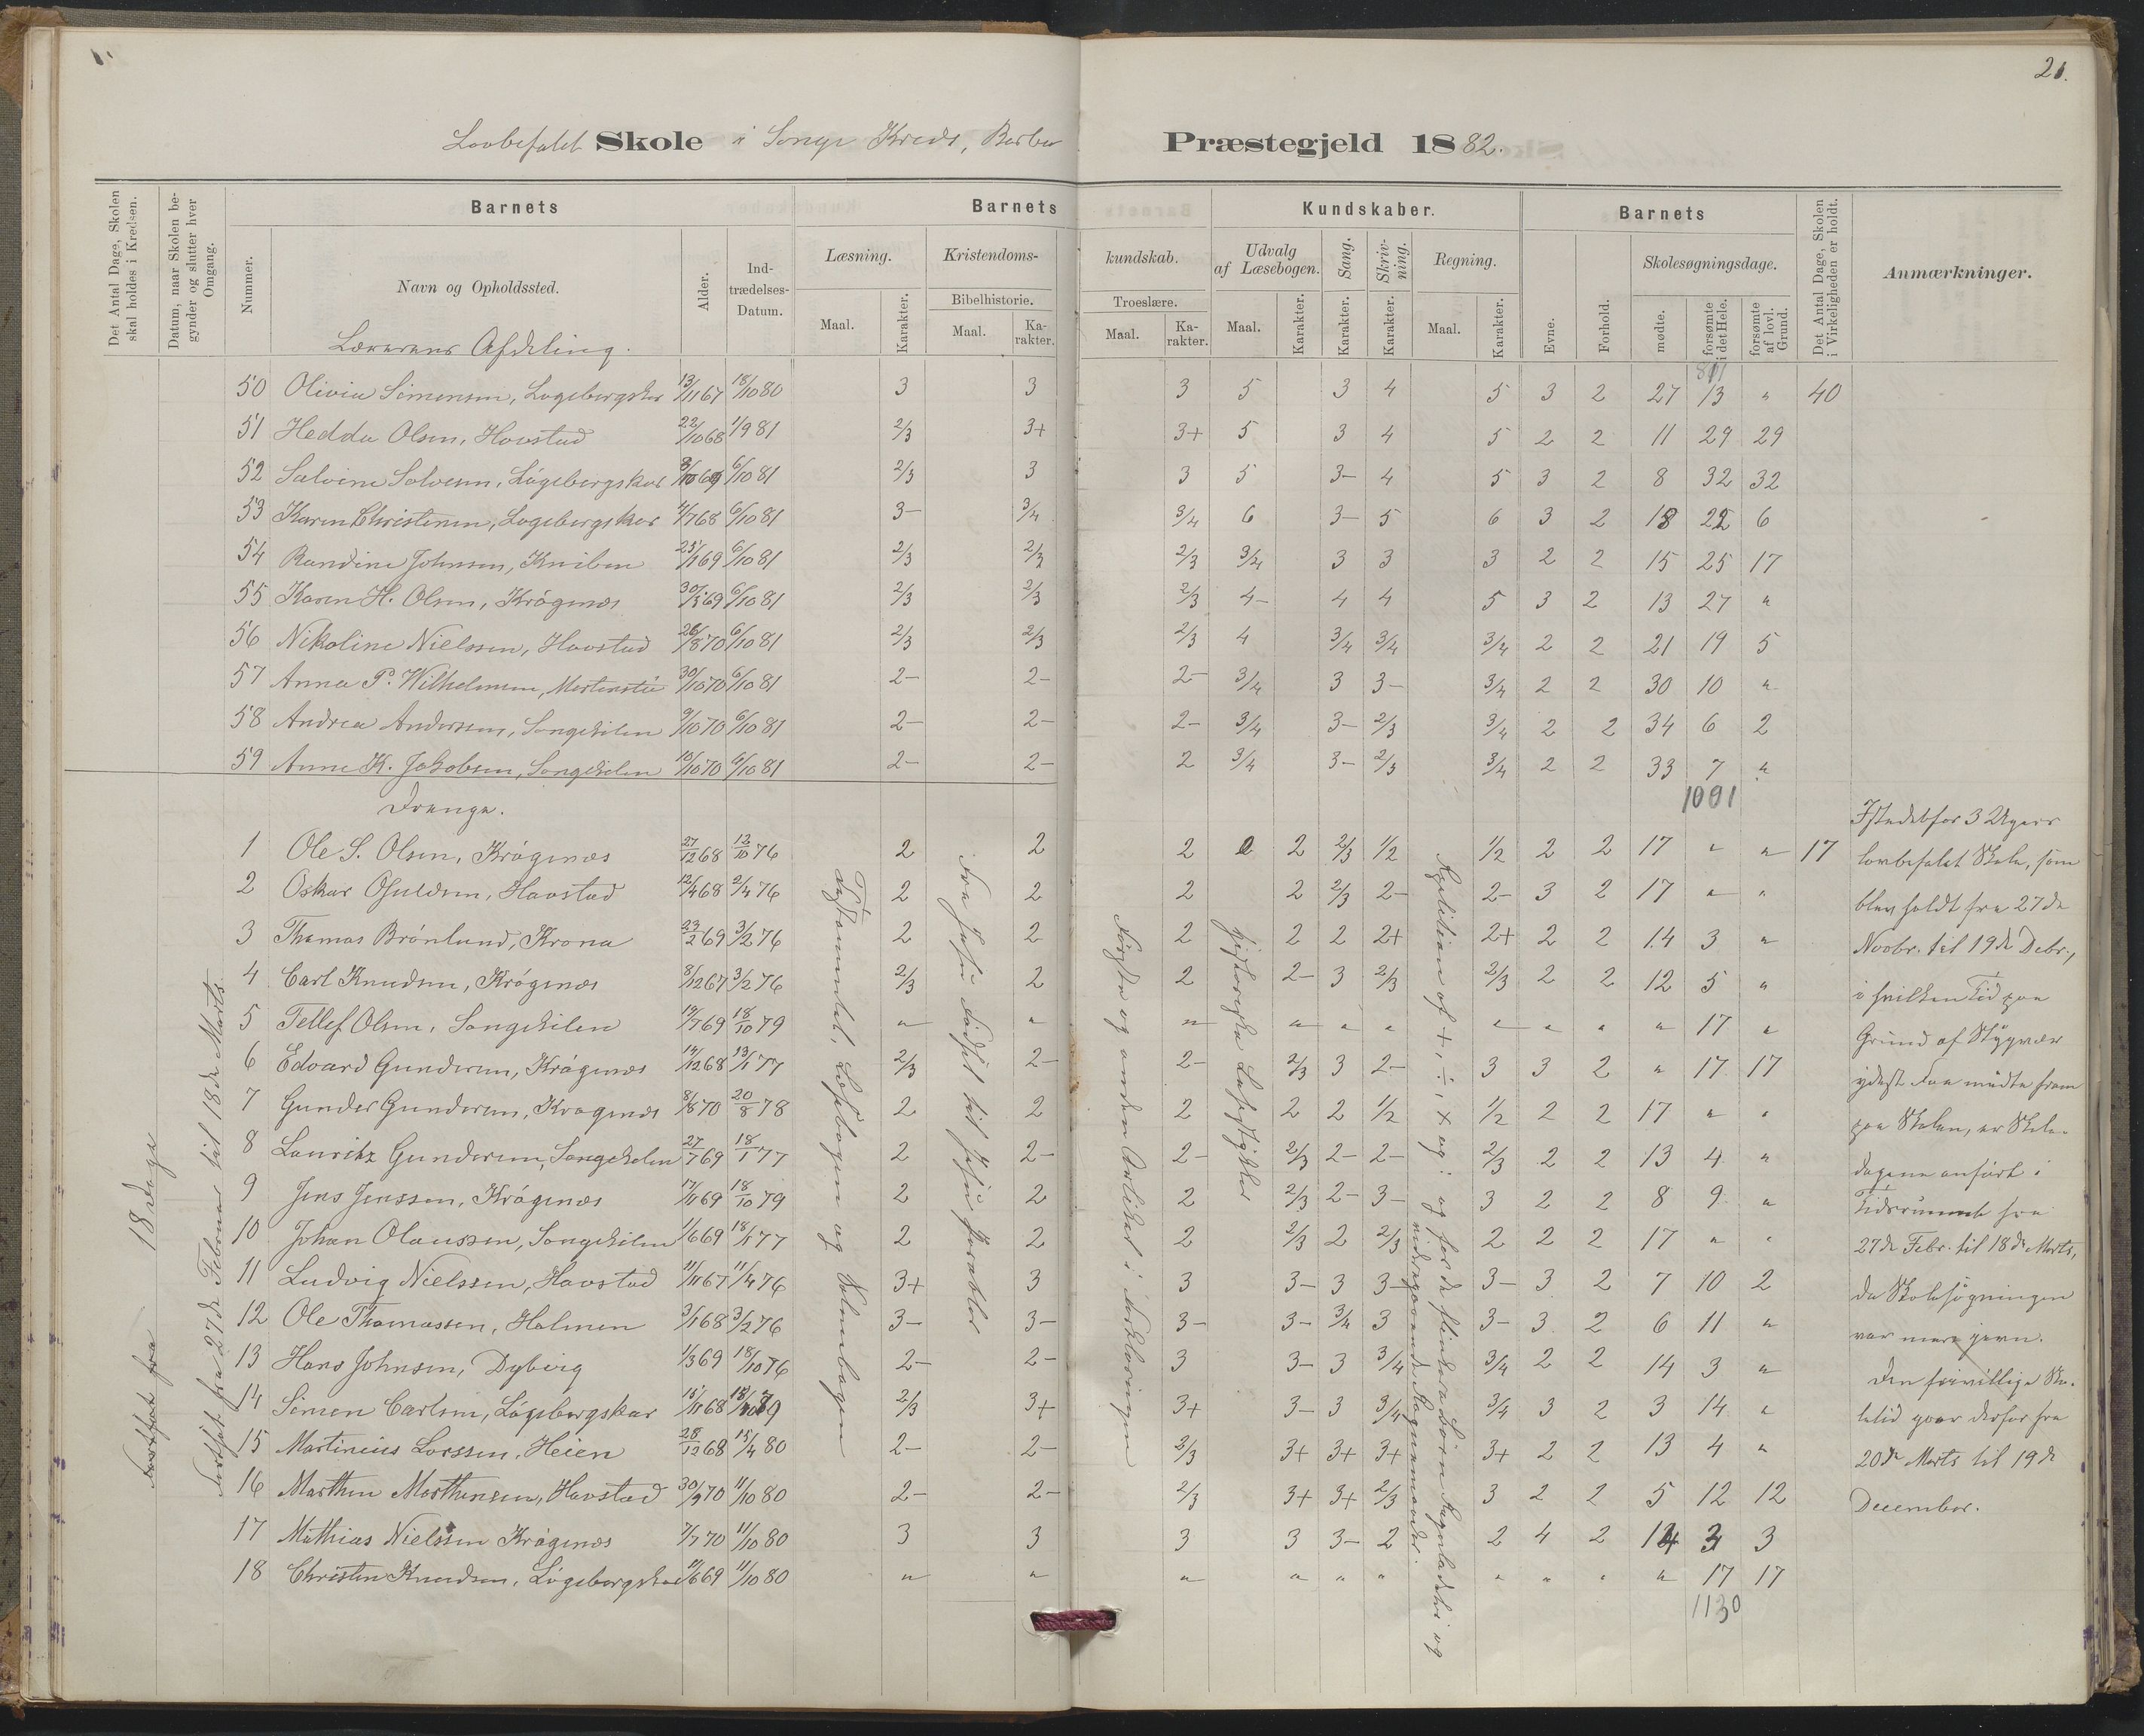 21.
Lovbefalet Skole i Songe Kreds, Barbu Præstegjeld 1882.
Det Antal Dage, Skolen skal holdes i Kredsen.
Datum, naar Skolen begynder og slutter hver Omgang.
Nummer.
Barnets
Navn og Opholdssted.
Alder.
Indtrædelses-Datum.
Barnets
Læsning.
Maal.
Karakter.
Kristendoms-
Bibelhistorie.
Maal.
Karakter.
kundskab.
Troeslære.
Maal.
Karakter.
Kundskaber.
Udvalg af Læsebogen.
Maal.
Karakter.
Sang.
Karakter.
Skrivning.
Karakter.
Regning.
Maal.
Karakter.
Barnets
Evne.
Forhold.
Skolesøgningsdage.
mødte.
forsømte i det Hele.
forsømte af lovl. Grund.
Det Antal Dage, Skolen i Virkeligheden er holdt.
Anmærkninger.
Lærerens Afdeling.
50 Olivia Simonsen, 13/11 67 18/10 80 3 3 3 5 3 4 5 3 2 27 13 " 40
51 Hedda Olsen, Havstad 22/10 68 1/9 81 2/3 3+ 3+ 5 3 4 5 2 2 11 29 29
52 6/10 81 2/3 3 3 5 3- 4 5 3 2 8 32 32
53 Karen Christensen, 4/7 68 6/10 81 3- 3/4 3/4 6 3- 5 6 3 2 18 22 6
54 Randine Johnsen, Kniben 6/10 81 2/3 2/3 2/3 3/4 3 3 3 2 2 15 25 17
55 Karen H. Olsen, Krøgenæs 6/10 81 2/3 2/3 2/3 4- 4 4 5 3 2 13 27 "
56 Nikoline Nielssen, Havstad 26/8 70 6/10 81 2/3 2/3 2/3 4 3/4 3/4 3/4 2 2 21 19 5
57 Anna P. Wilhelmsen, 30/10 70 6/10 81 2- 2- 2- 3/4 3 3- 3/4 2 2 30 10 "
58 Andrea Andersen, Songekilen 9/10 70 6/10 81 2- 2- 2- 3/4 3- 2/3 3/4 2 2 34 6 2
59 Anne K. Jakobsen, Songekilen 10/10 70 6/10 81 2- 2- 2 3/4 3- 2/3 3/4 2 2 33 7 "
1001
Drenge.
1 Ole S. Olsen, Krøgenæs 27/12 68 12/10 76 2 2 2 2 2/3 1/2 1/2 2 2 17 " " 17
2 Oskar Osuldsen, Havstad 12/4 68 2/4 76 2 2 2 2 2/3 2- 2- 3 2 17 " "
3 Thomas Brønlund, Krona 23/2 69 3/2 76 2 2 2 2 2 2+ 2+ 2 2 14 3 "
4 Carl Knudsen, Krøgenæs 8/12 67 3/2 76 2/3 2 2 2- 3 2/3 2/3 2 2 12 5 "
5 Tellef Olsen, Songekilen 18/10 79 " " " " " " " " " " 17 "
6 Edvard Gundersen, Krøgenæs 14/12 68 13/1 77 2/3 2- 2- 2/3 3 2- 3 3 2 " 17 17
7 Gunder Gundersen, Krøgenæs 8/8 70 20/8 78 2 2 2 2 2 1/2 1/2 2 2 17 " "
8 Lauritz Gundersen, Songekilen 27/7 69 18/1 77 2 2- 2- 2/3 2- 2- 2/3 2 2 13 4 "
9 Jens Jenssen, Krøgenæs 17/11 69 18/10 79 2 2 2 2/3 2- 3- 3 2 2 8 9 "
10 Johan Olaussen, Songekilen 1/6 69 18/1 77 2 2 2 2/3 2 2/3 2 2 2 17 " "
11 Ludvig Nielssen, Havstad 11/11 67 11/4 76 3+ 3 3 3- 3 3- 3- 3 2 7 10 2
12 Ole Thomassen, Holmen 3/1 68 3/2 76 3- 3- 3- 3- 3/4 3 3- 3 2 6 11 "
13 Hans Johnsen, Dybvig 1/3 69 18/10 76 2- 2- 3 3- 3 3/4 3/4 2 2 14 3 "
14 Simen Carlsen, 15/11 68 2/3 3+ 3+ 3- 3 3/4 3/4 3 2 3 14 "
15 Martinius Larssen, Heien 28/12 68 15/4 80 2- 2- 2/3 3+ 3+ 3+ 3+ 2 2 13 4 "
16 Marthin Marthinsen, Havstad 30/9 70 11/10 80 2- 2- 2/3 3+ 3+ 2/3 3 2 2 5 12 12
17 Mathias Nielssen Krøgenæs 7/7 70 11/10 80 3 3 3 3 3- 2 2 4 2 14 3 3
18 Christen Knudsen, 11/6 69 11/10 80 " " " " " " " " " " 17 17
1130
18 Dage
Fortsat fra
Fortsat fra 27de Februar til 18de Marts.
Testamentet, Læsebogen og Salmebogen
Fra Jesu Fødsel til Jesu Parabler
Første og anden Artikel i Forklaringen
Historiske Læsestykker
Istedetfor 3 Ugers
lovbefalet Skole, som
blev holdt fra 27de
Novbr. til 19de Debr.,
i hvilken Tid paa
Grund af Stygvær
ydest Faa mødte frem
paa Skolen, er Skole-
dagene anført i
Tidsrummet fra
27de Febr. til 18de Marts,
da Skolesøgningen
var mere jevn.
Den frivillige Sko-
letid gaar derfor fra
20de Marts til 19de
December.